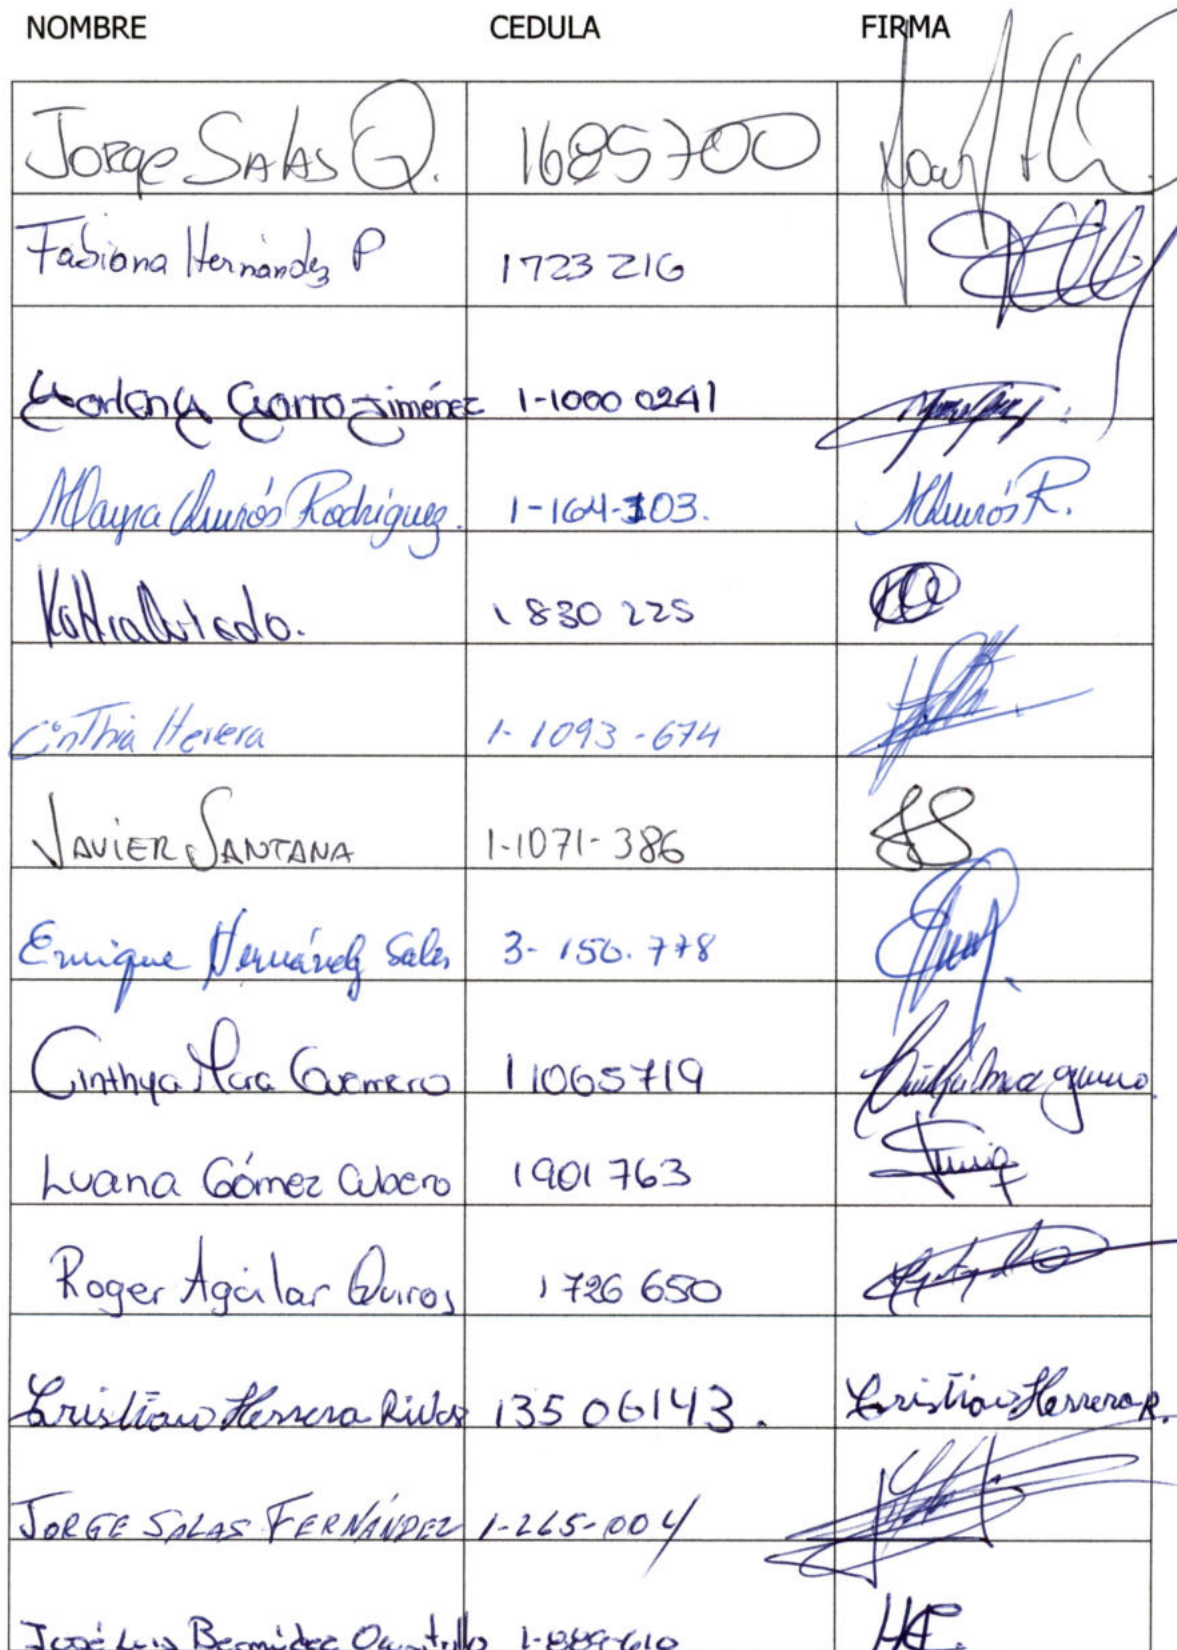 NOMBRE CEDULA FIRMA
Jorge Salas Q. 1685700
Fabiana Hernández P 1723 216
Garro Jiménez 1-1000 0241
Mayra Quirós Rodríguez. 1-164-303. MQuirós R.
Kattia Oviedo. 1 830 225
Cinthia Herrera 1-1093-674
JAVIER SANTANA 1-1071-386
Enrique Hernández Salas 3-150.778
Cinthya Mara Guerrero 11065719
Luana Gómez Cubero 1901763
Roger Aguilar Quiros 1726 650
Cristian Herrera Rivas 135 06143. Cristian Herrera R.
JORGE SALAS FERNÁNDEZ 1-265-004
José Luis Bermúdez